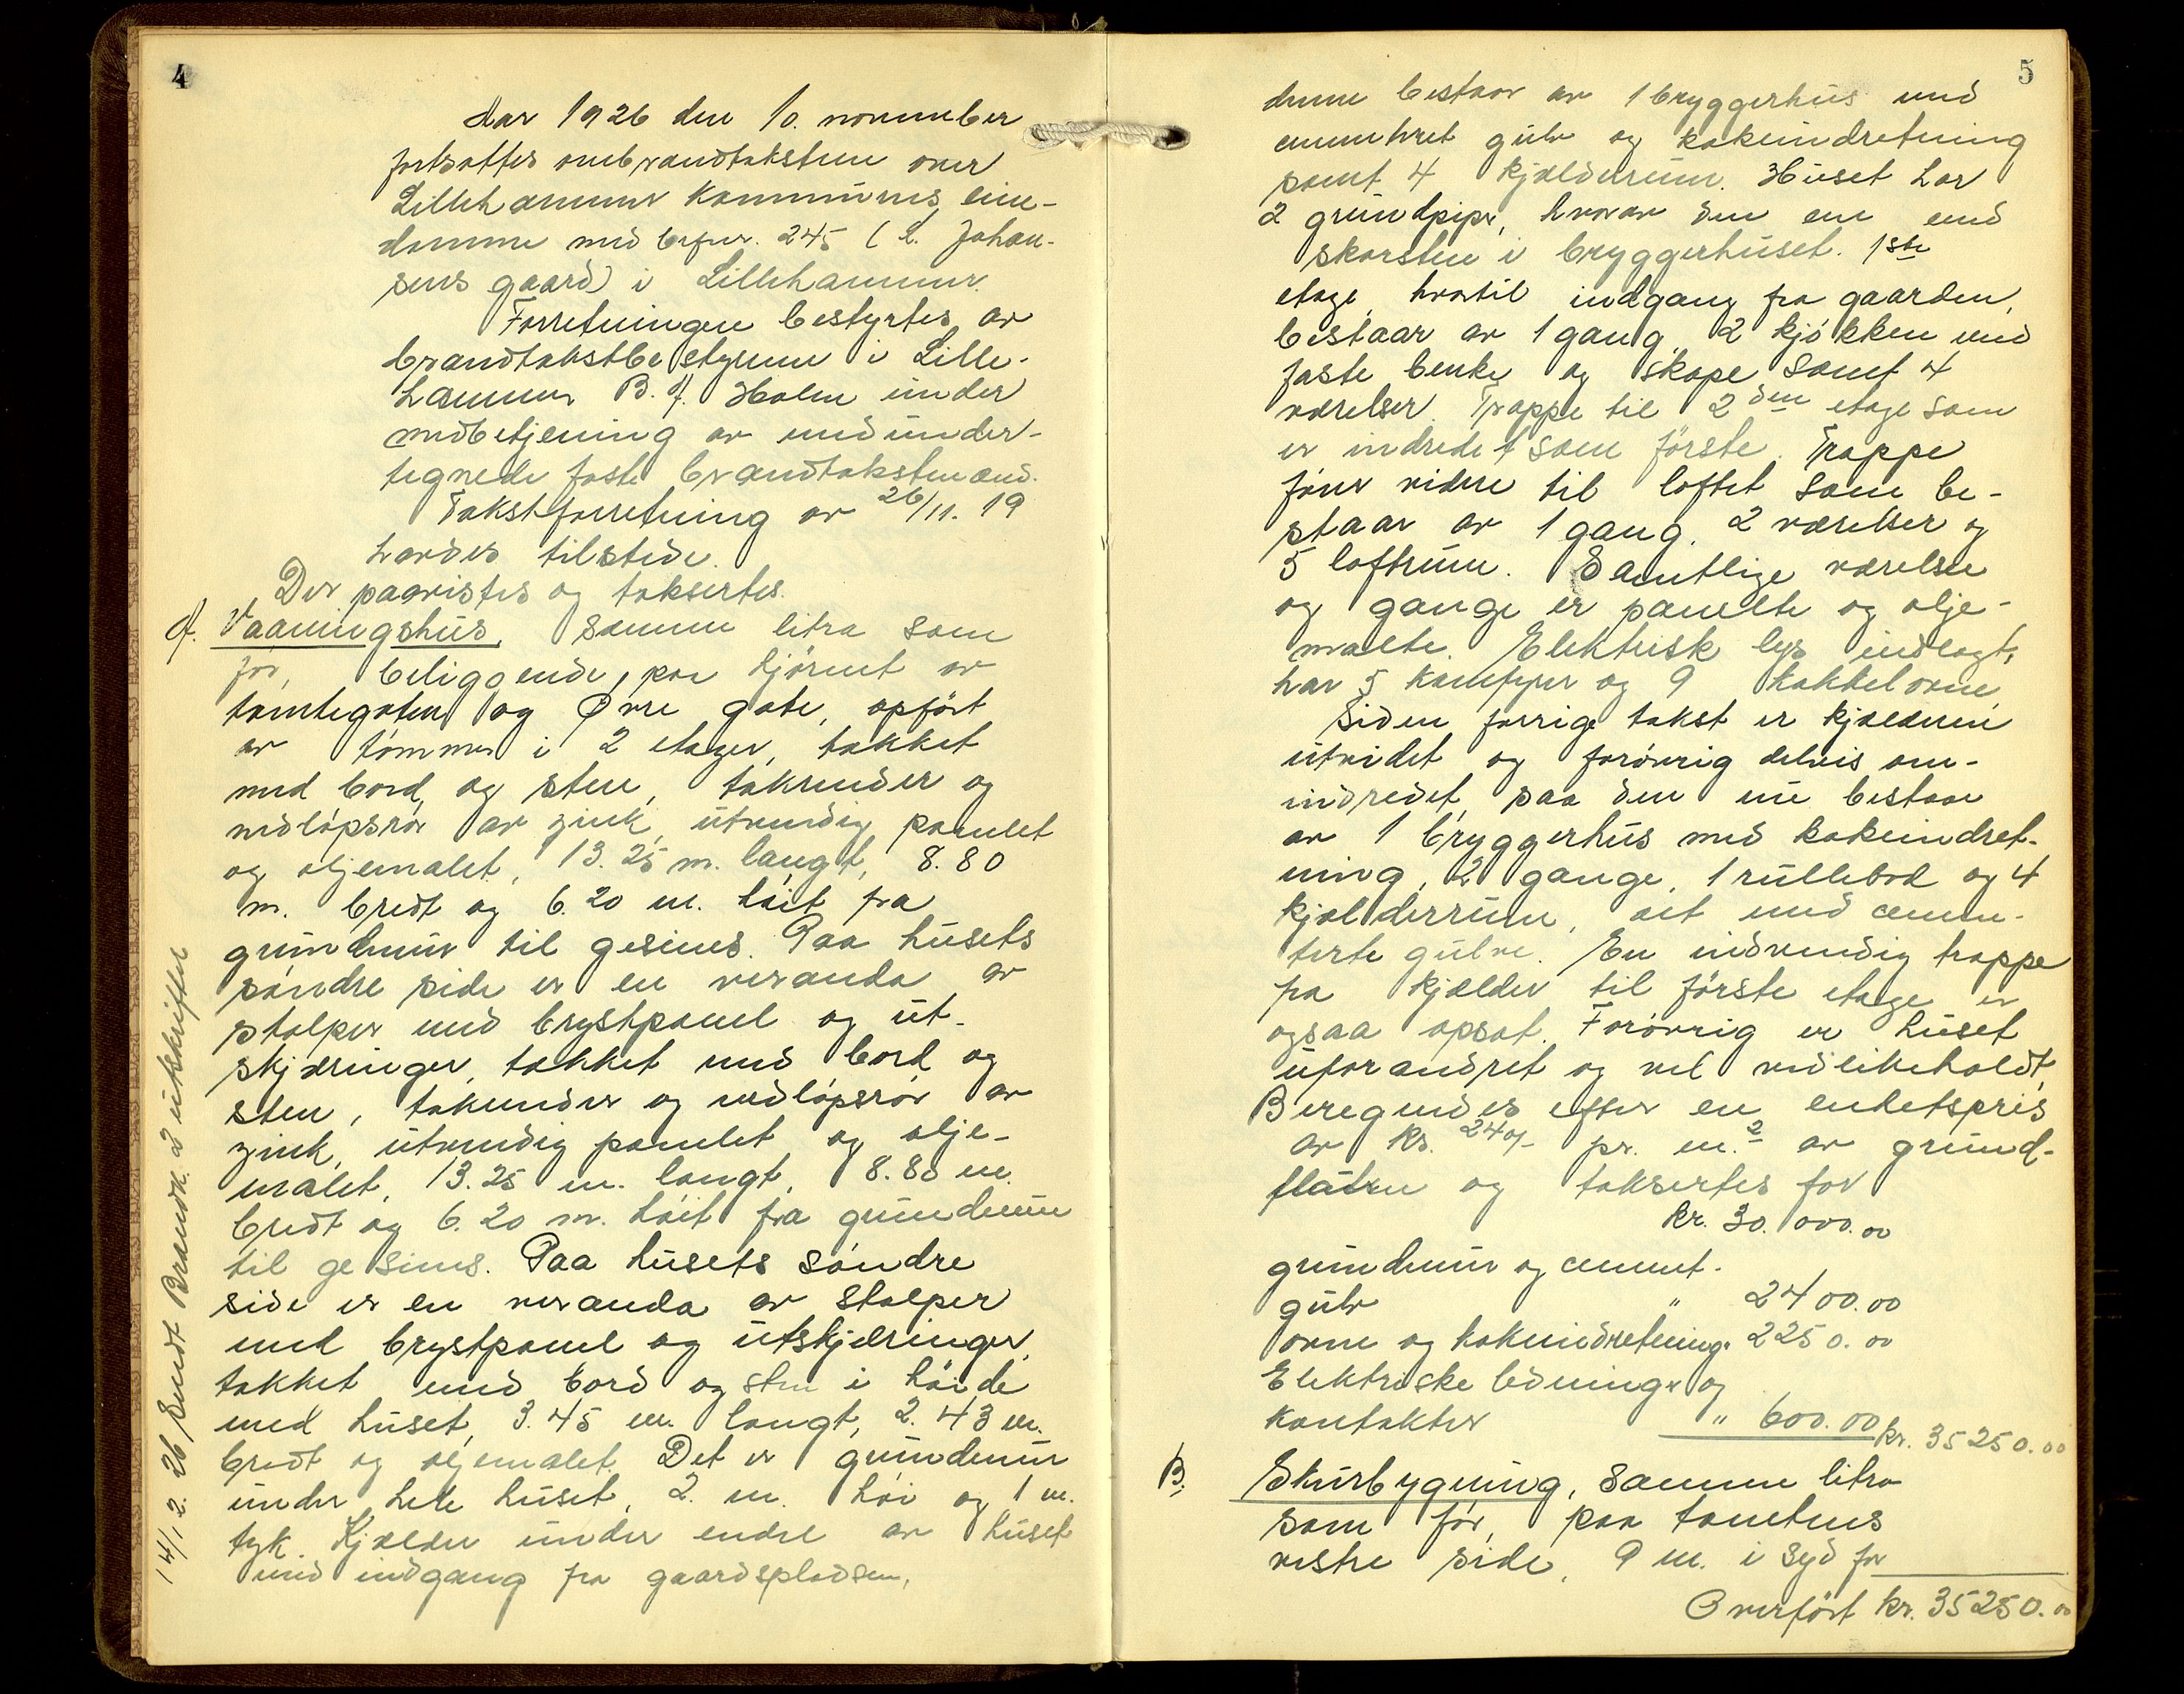 4
Aar 1926 den 10. november
fortsattes ombrandtaksten over
Lillehammer kommunes eien-
domme med brfnr. 245 (L. Johan-
sens gaard) i Lillehammer.
Forretningen bestyrtes av
brandtakstbestyreren i Lille-
hammer B. A. Holm under
medbetjening av medunder-
tegnede faste brandtakstmænd.
Takstforretning av 26/11. 19
havdes tilstede.
Der paavistes og taksertes.
A. Vaaningshus, samme litra som
før, beliggende paa hjørnet av
tomtegaten og Øvre gate, opført
av tømmer i 2 etager, takket
med bord og sten, takrender og
nedløpsrør av zink, utvendig panelet
og oljemalet, 13.25 m. langt, 8.80
m. bredt og 6.20 m. høit fra
grundmur til gesims. Paa husets
søndre side er en veranda av
stolper med brystpanel og ut-
skjæringer, takket med bord og
sten, takrender og nedløpsrør av
zink, utvendig panelet og olje-
malet, 13.25 m. langt, 8.80 m.
bredt og 6.20 m. høit fra grundmur
til gesims. Paa husets søndre
side er en veranda av stolper
med brystpanel og utskjæringer,
takket med bord og sten i høide
med huset, 3.45 m. langt, 2.43 m.
bredt og oljemalet. Det er grundmur
under hele huset, 2. m. høi og 1 m.
tyk. Kjælder under endel av huset
med indgang fra gaardspladsen,
14/12. 26 Sendt Brandk. 2 utskrifter
5
denne bestaar av 1 bryggerhus med
cementeret gulv og kokeindretning
samt 4 kjælderrum. Huset har
2 grundpiper, hvorav den ene med
skorsten i bryggerhuset. 1ste
etage, hvortil indgang fra gaarden,
bestaar av 1 gang, 2 kjøkken med
faste benke og skape samt 4
værelser. Trappe til 2den etage som
er indredet som første. Trappe
fører videre til loftet som be-
staar av 1 gang, 2 værelser og
5 loftrum. Samtlige værelser
og gange er panelte og olje-
malte. Elektrisk lys indlagt,
har 5 komfyrer og 9 kakkelovne,
Siden forrige takst er kjælderen
utvidet og forøvrig delvis om-
indredet, saa den nu bestaar
av 1 bryggerhus med kokeindret-
ning, 2 gange, 1 rullebod og 4
kjælderrum, alt med cemen-
terte gulve. En indvendig trappe
fra kjælder til første etage er
ogsaa opsat. Forøvrig er huset
uforandret og vel vedlikeholdt,
Beregnedes efter en enhetspris
av kr. 240/- pr. m.2 av grund-
flaten og taksertes for
kr. 30.000.00
grundmur og cement-
gulv " 2400.00
ovne og kokeindretning. 2250.00
Elektriske ledninger og
kontakter " 600.00 kr. 35250.00
B. Skurbygning, samme litra
som før, paa tomtens
vestre side, 9 m. i syd for
Overført kr. 35250.00